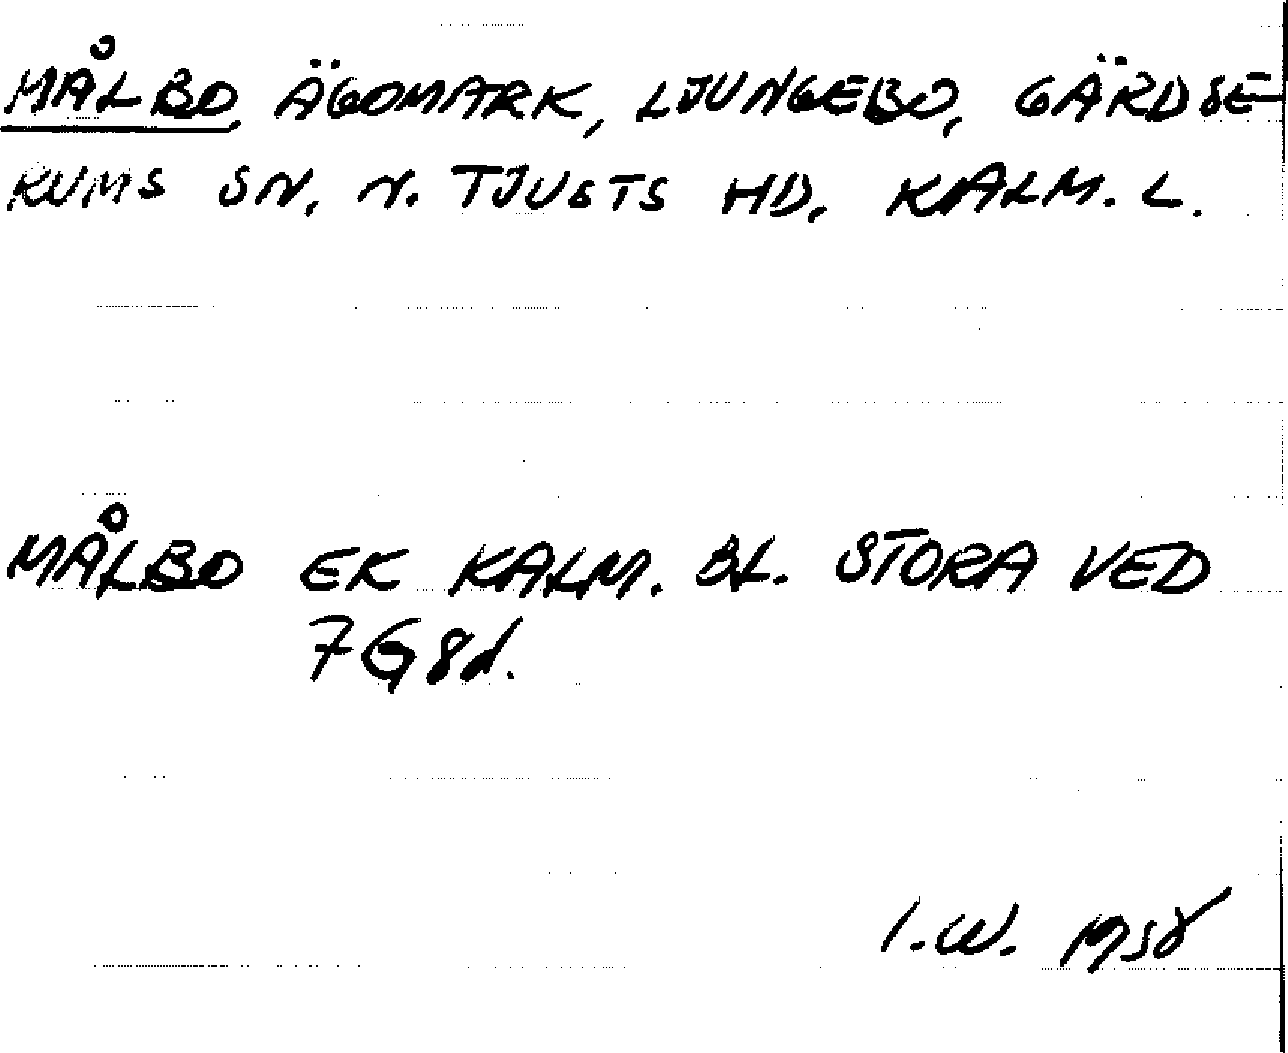 MÅLBO, ÄGOMARK, LJUNGEBO, GÄRDSE-
RUMS SN, N. TJUSTS HD, KALM. L.
MÅLBO EK KALM. BL. STORA VED
7G8d.
I.W. 1958